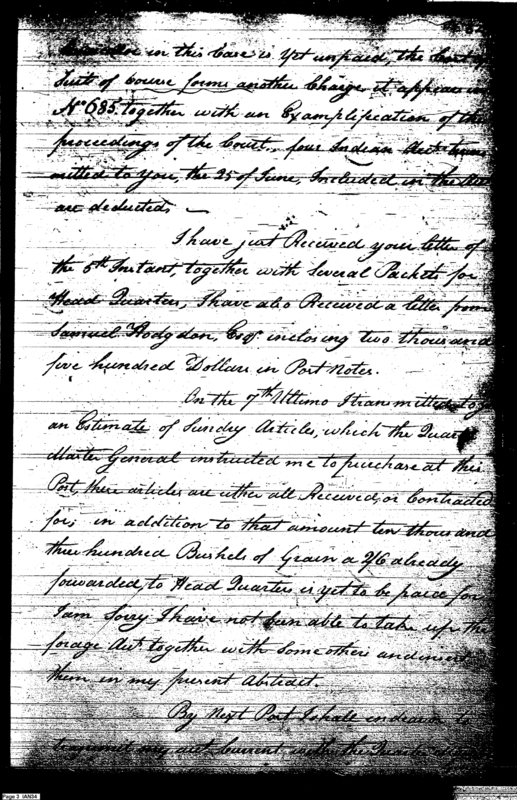 in this Case is Yet unpaid, the Cost of
Suit of Course forms another Charge, it appears in
No 685. together with an Examplification of the
proceedings of the Court. four Indian Accts trans
mitted to You, the 25 of June, Included in the
are deducted —
I have just Received your letter of
the 5th Instant, together with Several Packets for
Head Quarters, I have also Received a letter from
Samuel Hodgdon, Esqr. inclosing two thousand
five hundred Dollars in Post Notes.
On the 7th Ultimo I transmitted to
an Estimate of Sundry Articles, which the Quar
Master General instructed me to purchase at this
Post, these articles are either all Received, or Contracted
for, in addition to that amount ten thousand
three hundred Bushels of Grain a 2/6 already
forwarded, to Head Quarters is yet to be paid for
I am Sorry I have not been able to take up the
forage Acct together with Some others and insert
them in my present Abstract.
By Next Post I shall endeavor to
transmit my acct Current with the Quarter
Page 3 IAN34